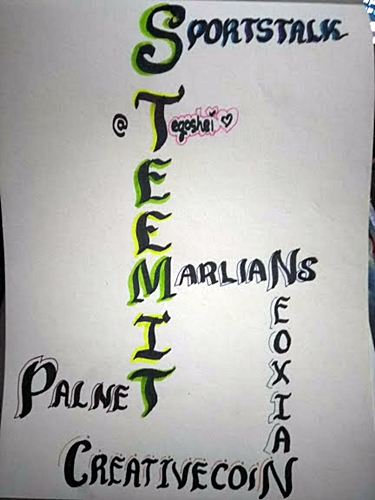 SPORTSTALK
@Tegoshei
STEEMIT
MARLIANS
NEOXIAN
PALNET
CREATIVECOIN